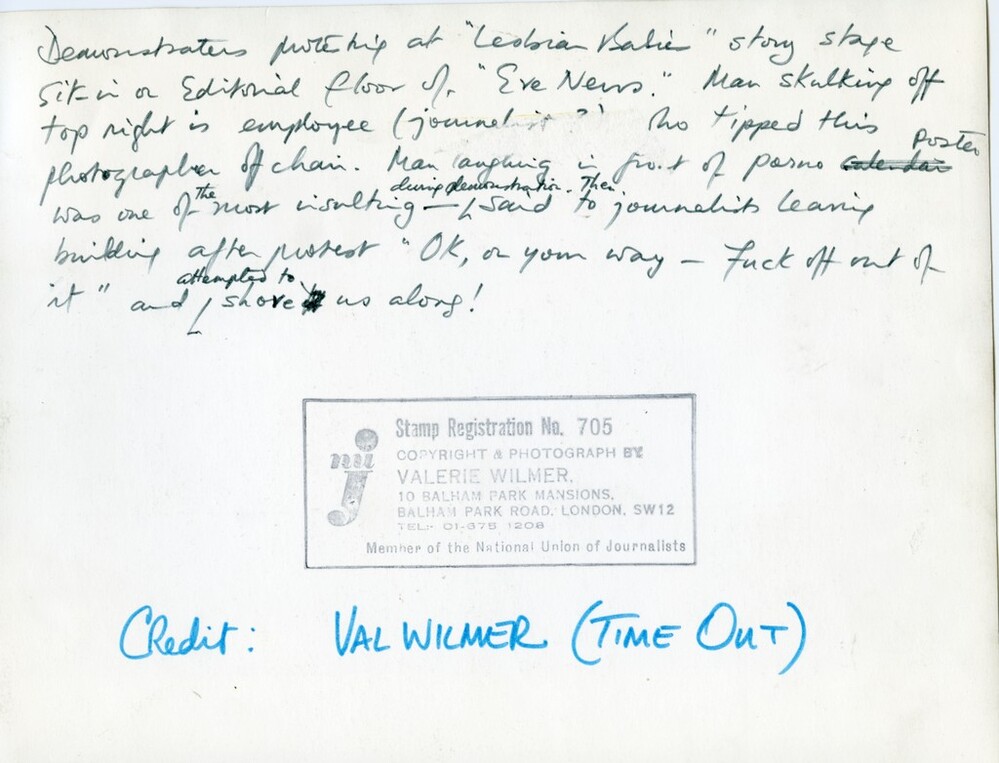 Demonstrators protesting at "Lesbian Babies" story stage
sit-in on Editorial floor of "Eve News." Man skulking off
top right is employee (journalist?) who tipped this
photographer off chair. Man laughing in front of porno calendar poster
was one of the most insulting — during demonstration. Then said to journalists leaving
building after protest "OK, on your way — Fuck off out of
it" and attempted to shove us along!
nuj
Stamp Registration No. 705
COPYRIGHT & PHOTOGRAPH BY
VALERIE WILMER,
10 BALHAM PARK MANSIONS,
BALHAM PARK ROAD, LONDON, SW12
TEL:- 01-675 1208
Member of the National Union of Journalists
Credit: VAL WILMER (TIME OUT)